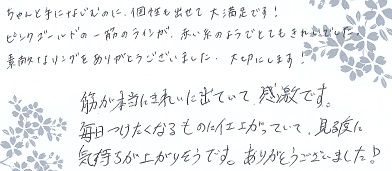 ちゃんと手になじむのに、個性も出せて大満足です！
ピンクゴールドの一筋のラインが、赤い糸のようでとてもきれいでした。
素敵なリングをありがとうございました。大切にします！
筋が本当にきれいに出ていて、感激です。
毎日つけたくなるものに仕上がっていて、見る度に
気持ちが上がりそうです。ありがとうございました！